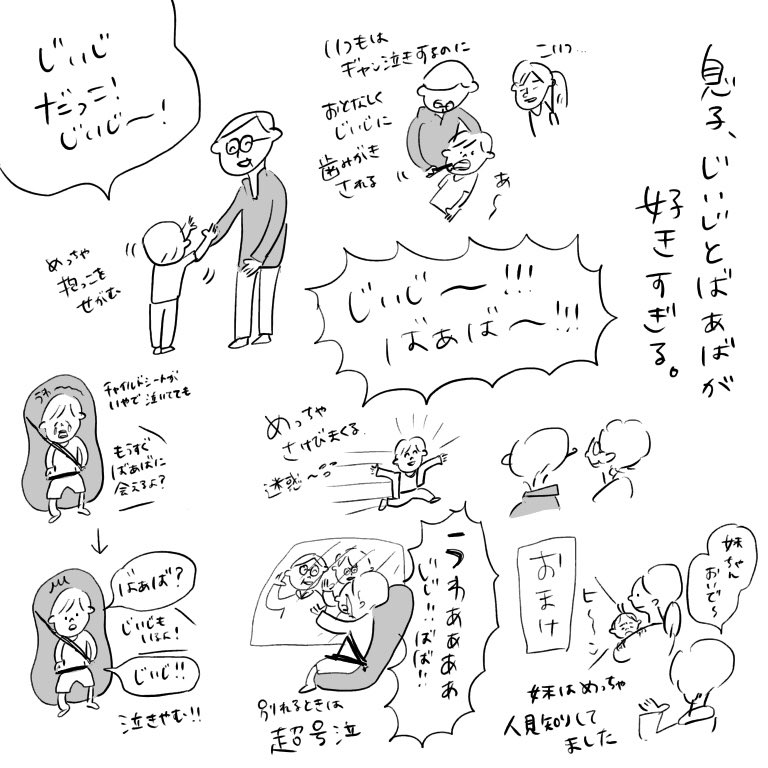 息子、じぃじとばぁばが
好きすぎる。
じぃじ
だっこ!
じぃじ〜!
めっちゃ
抱っこを
せがむ
いつもは
ギャン泣きするのに
おとなしく
じぃじに
歯みがき
される
あ〜
こいつ…
じぃじ〜!!!
ばぁば〜!!!
めっちゃ
さけびまくる
迷惑〜
うわ〜
チャイルドシートが
いやで泣いてても
もうすぐ
ばぁばに
会えるよ?
ばぁば?
じぃじも
いるよ!
じぃじ!!
泣きやむ!!
うわぁぁぁぁ
じぃじ!!ばぁば!!
別れるときは
超号泣
おまけ
妹ちゃん
おいで〜
ビ〜ン
妹はめっちゃ
人見知りして
ました